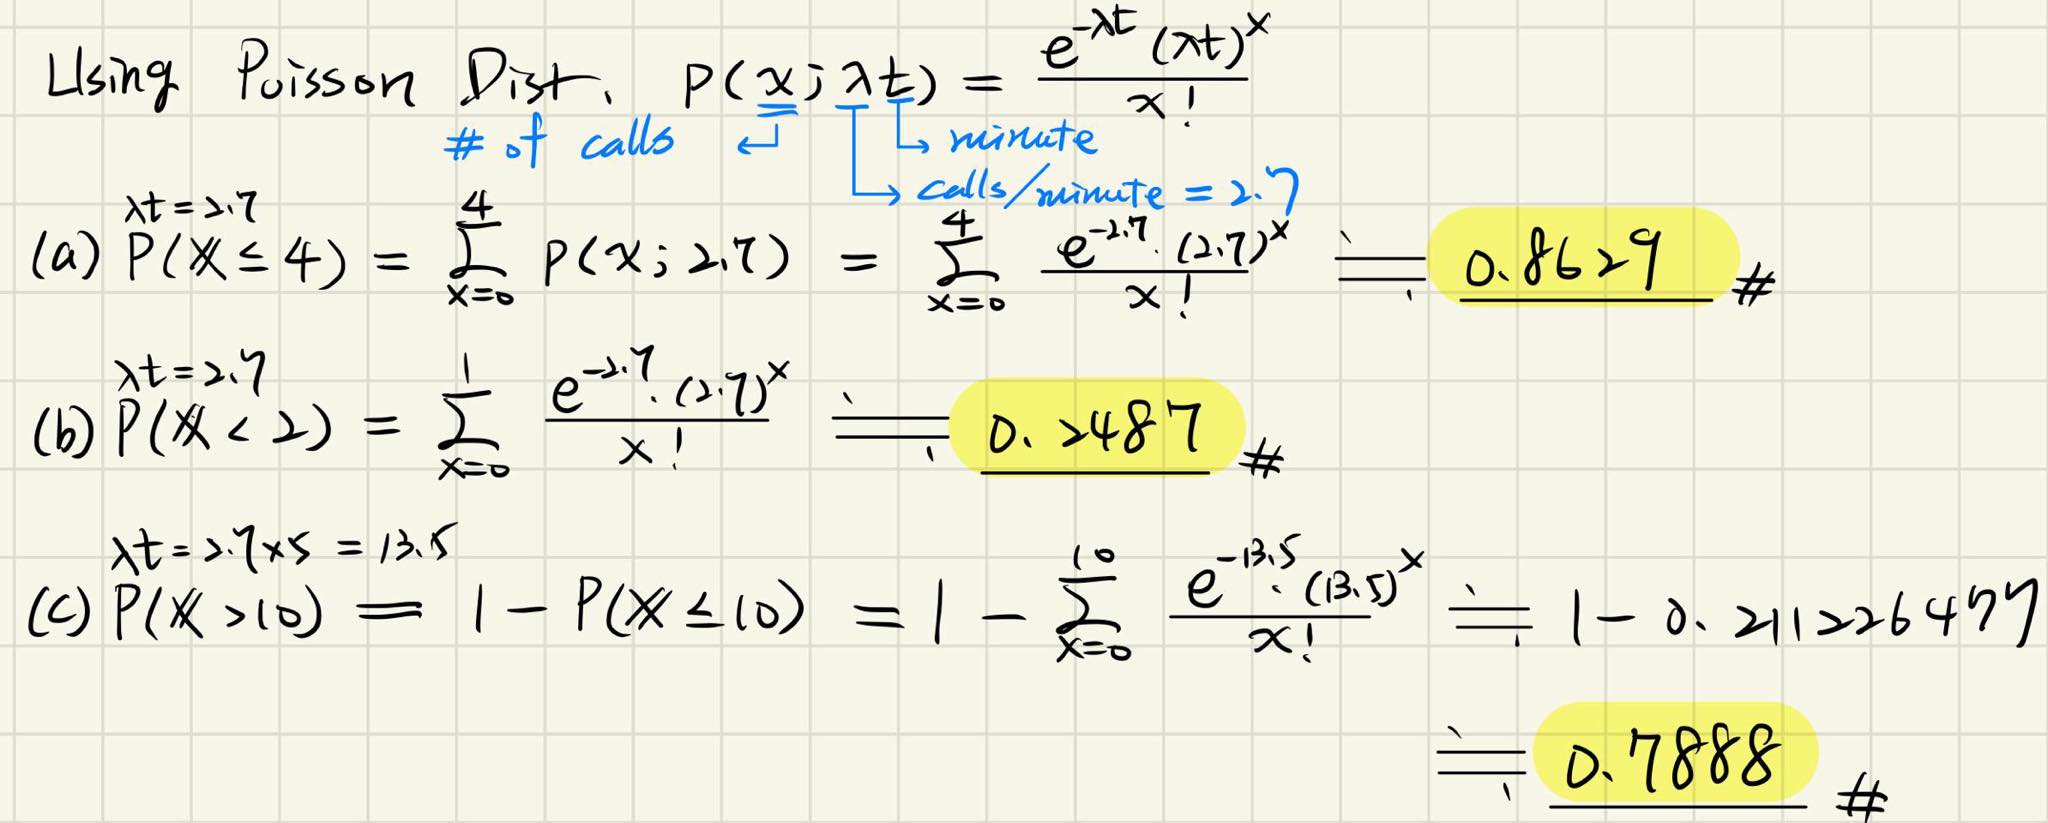 Using Poisson Dist. p(x; λt) = e^{-λt} (λt)^x / x!
# of calls ↵ ↳ minute
↳ calls/minute = 2.7
λt = 2.7
(a) P(X ≤ 4) = Σ_{x=0}^{4} p(x; 2.7) = Σ_{x=0}^{4} e^{-2.7} · (2.7)^x / x! ≒ 0.8629 #
λt = 2.7
(b) P(X < 2) = Σ_{x=0}^{1} e^{-2.7} · (2.7)^x / x! ≒ 0.2487 #
λt = 2.7×5 = 13.5
(c) P(X > 10) = 1 - P(X ≤ 10) = 1 - Σ_{x=0}^{10} e^{-13.5} · (13.5)^x / x! ≒ 1 - 0.211226477
≒ 0.7888 #